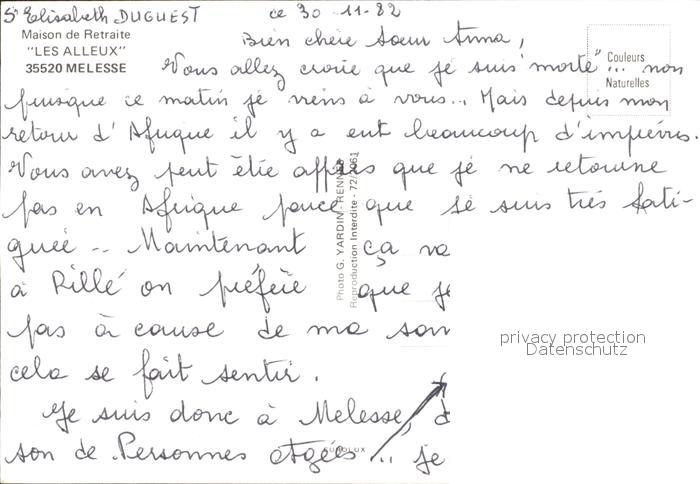 Sr Elisabeth DUGUEST ce 30-11-82
Maison de Retraite
"LES ALLEUX"
35520 MELESSE
Bien chère Sœur Anna,
Couleurs
Naturelles
Vous allez croire que je suis "morte"... non
puisque ce matin je viens à vous... Mais depuis mon
retour d'Afrique il y a eut beaucoup d'imprévus.
Vous avez peut être appris que je ne retourne
pas en Afrique parce que je suis très fati-
guée .. Maintenant ça va
à Rillé on préfère que je
pas à cause de ma san
cela se fait sentir.
Je suis donc à Melesse,
son de Personnes âgées... je
Photo G. YARDIN - RENNES
Reproduction Interdite - 72/
privacy protection
Datenschutz